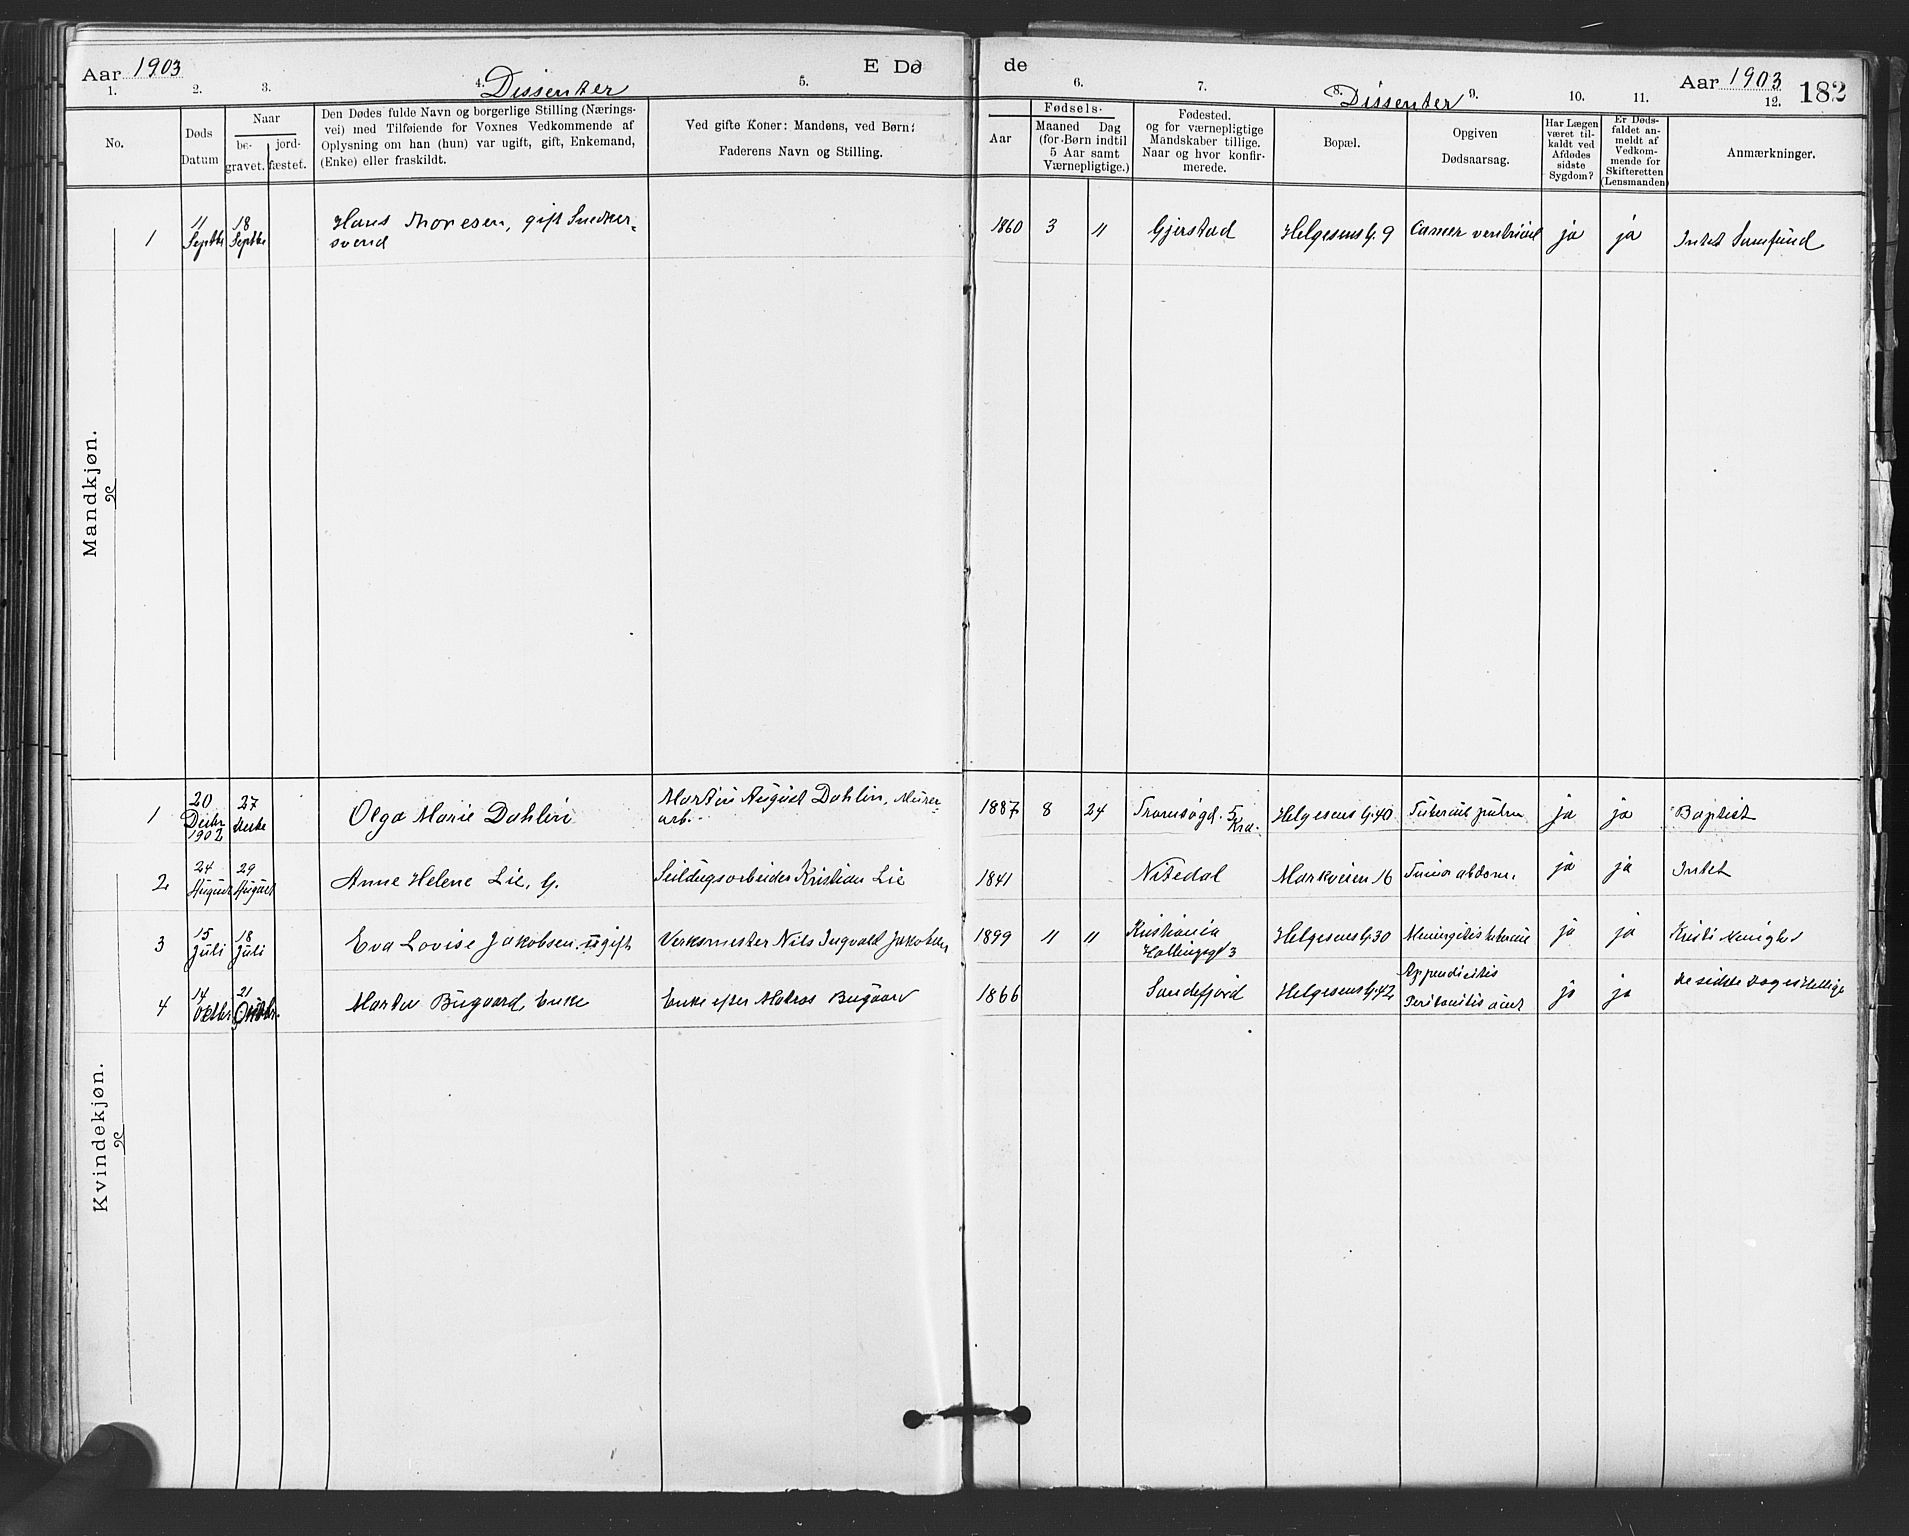 Aar 1903
E Dø
de
Aar 1903
182
1. 2. 3. 4. Dissenter 5.
6. 7. 8. Dissenter 9. 10. 11. 12.
No.
Døds
Datum
Naar
be-
gravet.
jord-
fæstet.
Den Dødes fulde Navn og borgerlige Stilling (Nærings-
vei) med Tilføiende for Voxnes Vedkommende af
Oplysning om han (hun) var ugift, gift, Enkemand,
(Enke) eller fraskildt.
Ved gifte Koner: Mandens, ved Børn:
Faderens Navn og Stilling.
Fødsels-
Aar
Maaned Dag
(for Børn indtil
5 Aar samt
Værnepligtige.)
Fødested.
og for værnepligtige
Mandskaber tillige.
Naar og hvor konfir-
merede.
Bopæl.
Opgiven
Dødsaarsag.
Har Lægen
været til-
kaldt ved
Afdødes
sidste
Sygdom?
Er Døds-
faldet an-
meldt af
Vedkom-
mende for
Skifteretten
(Lensmanden)
Anmærkninger.
Mandkjøn.
1
11
Septbr
18
Septbr
Hans Thoresen, gift Snedker-
svend
1860 3 " Gjerstad Helgesens G. 9 Cancer ventriculi ja ja Intet Samfund
Kvindekjøn.
1
20
Decbr
1902
27
Olga Marie Dahlin
Martin August Dahlin, Murer-
arb.
1887 8 24 Tromsøgd. 5
Kra.
Helgesens G. 40 Tubercul pulm ja ja Baptist
2
24
August
29
August
Anne Helene Lie, G.
Seildugsarbeider Kristian Lie
1841 Nitedal Markveien 16 Tumor abdom. ja ja Intet
3
15
Juli
18
Juli
Eva Lovise Jakobsen ugift
Verksmester Nils Ingvald Jakobsen
1899 " " Kristiania
Hallingsgd 3
Helgesens G. 30 Meningitis tubercul ja ja Kristi Menighed
4
14
Oktbr
21
Oktbr.
Marten Bugaard, Enke
Enke efter Matros Bugaard
1866 Sandefjord Helgesens G. 42 Appendicitis
Peritonitis acut
ja ja De sidste Dages Hellige